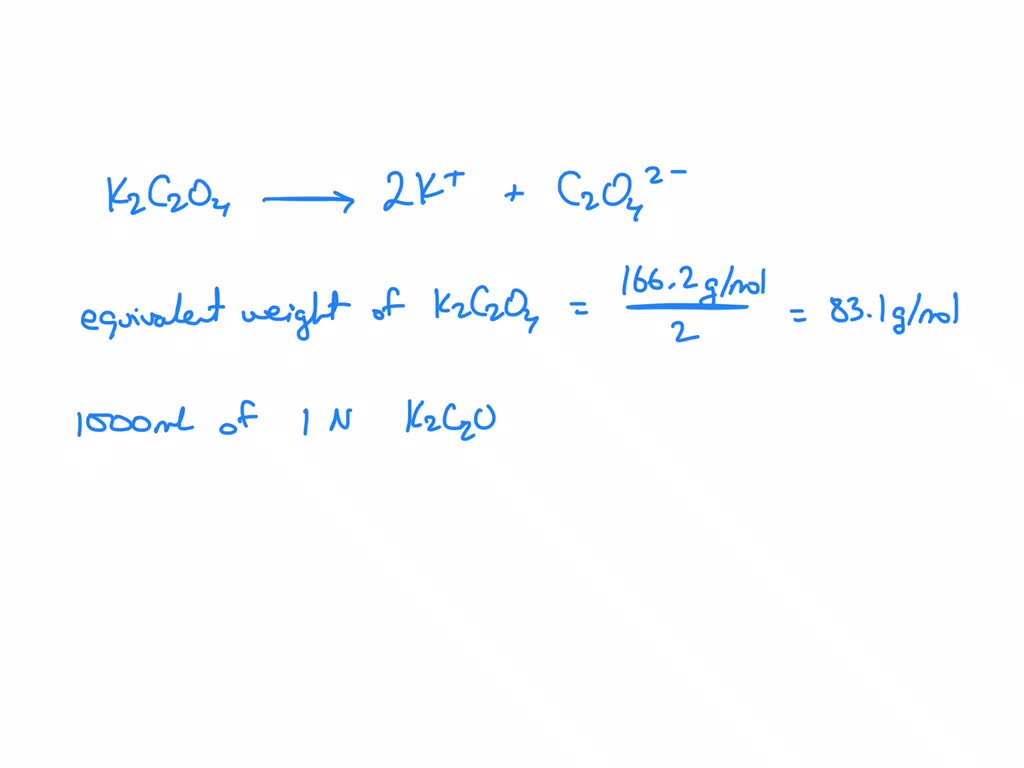 K₂C₂O₄ ⟶ 2K⁺ + C₂O₄²⁻
equivalent weight of K₂C₂O₄ = 166.2 g/mol / 2 = 83.1 g/mol
1000 mL of 1 N K₂C₂O